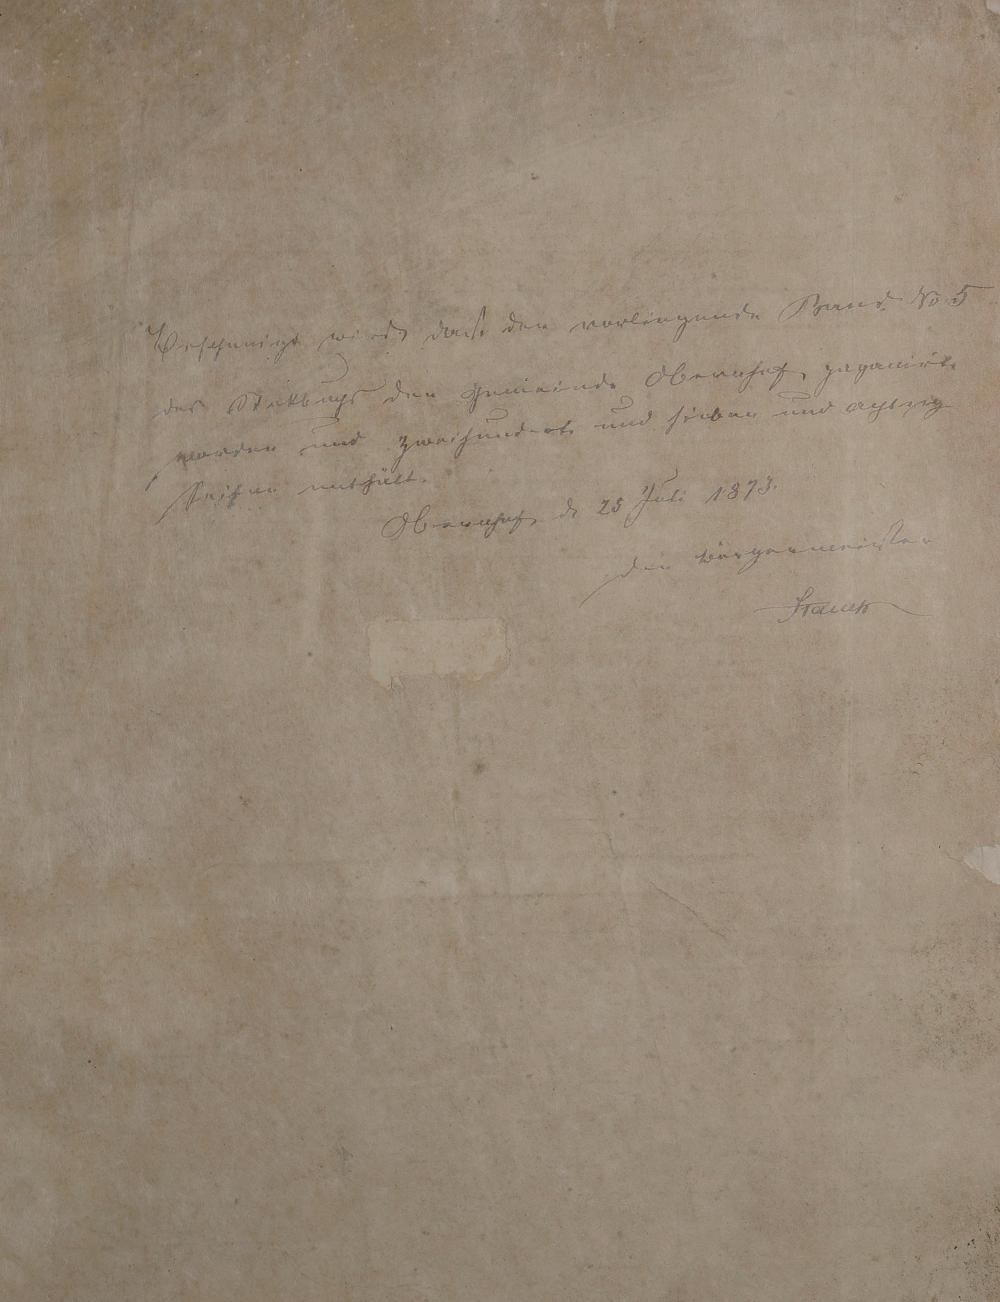 Bescheinigt wird, daß der vorliegende Band No 5
des Stockbuchs der Gemeinde Obernhof, paganirt
worden und zweihundert und sieben und achtzig
Seiten enthält.
Obernhof, d 25 Juli 1873.
Der Bürgermeister